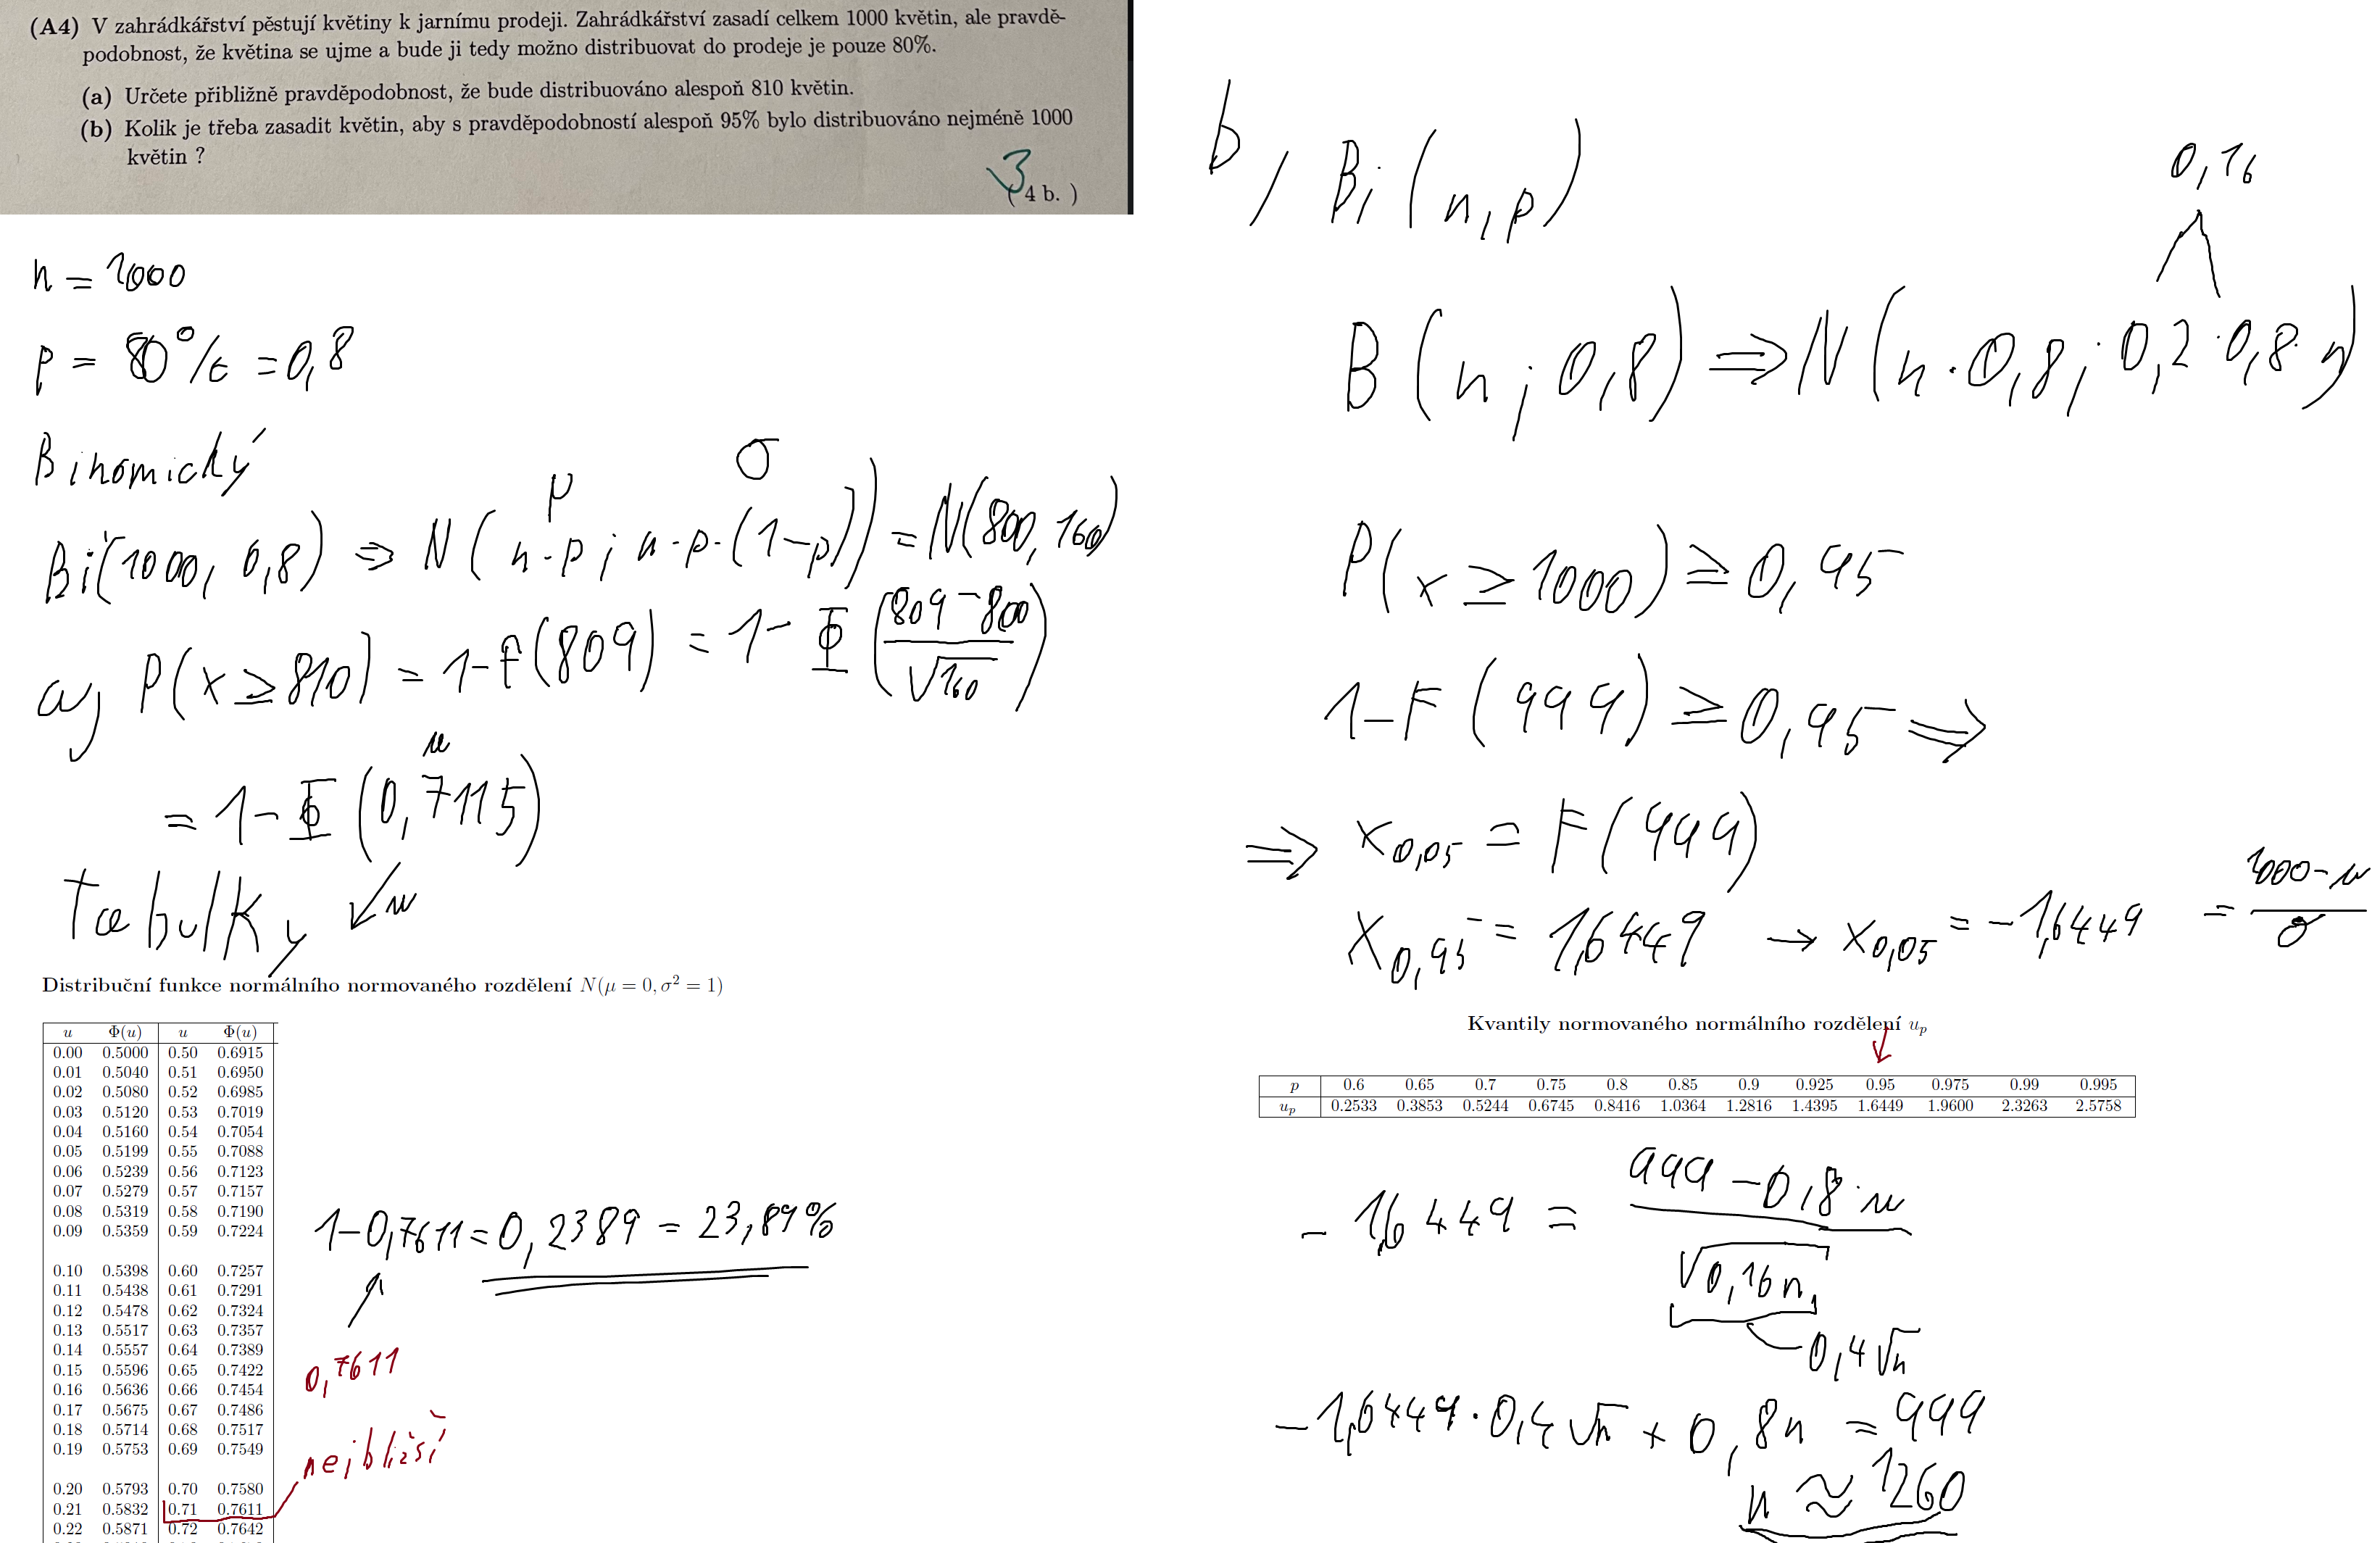 (A4) V zahrádkářství pěstují květiny k jarnímu prodeji. Zahrádkářství zasadí celkem 1000 květin, ale pravdě-
podobnost, že květina se ujme a bude ji tedy možno distribuovat do prodeje je pouze 80%.
(a) Určete přibližně pravděpodobnost, že bude distribuováno alespoň 810 květin.
(b) Kolik je třeba zasadit květin, aby s pravděpodobností alespoň 95% bylo distribuováno nejméně 1000
květin ?
3
( 4 b. )
n = 1000
p = 80% = 0,8
Binomický
μ σ
Bi(1000, 0,8) ⇒ N(n·p; n·p·(1-p)) = N(800, 160)
a, P(x ≥ 810) = 1-F(809) = 1- Φ((809-800)/√160)
u
= 1- Φ(0,7115)
Tabulky ↙u
Distribuční funkce normálního normovaného rozdělení N(μ = 0, σ² = 1)
u Φ(u) u Φ(u)
0.00 0.5000 0.50 0.6915
0.01 0.5040 0.51 0.6950
0.02 0.5080 0.52 0.6985
0.03 0.5120 0.53 0.7019
0.04 0.5160 0.54 0.7054
0.05 0.5199 0.55 0.7088
0.06 0.5239 0.56 0.7123
0.07 0.5279 0.57 0.7157
0.08 0.5319 0.58 0.7190
0.09 0.5359 0.59 0.7224
0.10 0.5398 0.60 0.7257
0.11 0.5438 0.61 0.7291
0.12 0.5478 0.62 0.7324
0.13 0.5517 0.63 0.7357
0.14 0.5557 0.64 0.7389
0.15 0.5596 0.65 0.7422
0.16 0.5636 0.66 0.7454
0.17 0.5675 0.67 0.7486
0.18 0.5714 0.68 0.7517
0.19 0.5753 0.69 0.7549
0.20 0.5793 0.70 0.7580
0.21 0.5832 0.71 0.7611
0.22 0.5871 0.72 0.7642
1-0,7611 = 0,2389 = 23,89%
0,7611
nejbližší
b, Bi(n,p)
0,16
B(n; 0,8) ⇒ N(n·0,8; 0,2·0,8·n)
P(x ≥ 1000) ≥ 0,95
1-F(999) ≥ 0,95 ⇒
⇒ x0,05 = F(999)
x0,95 = 1,6449 → x0,05 = -1,6449 = (1000-μ)/σ
Kvantily normovaného normálního rozdělení up
p 0.6 0.65 0.7 0.75 0.8 0.85 0.9 0.925 0.95 0.975 0.99 0.995
up 0.2533 0.3853 0.5244 0.6745 0.8416 1.0364 1.2816 1.4395 1.6449 1.9600 2.3263 2.5758
-1,6449 = (999-0,8·n)/√0,16n
0,4√n
-1,6449·0,4√n + 0,8n = 999
n ≈ 1260